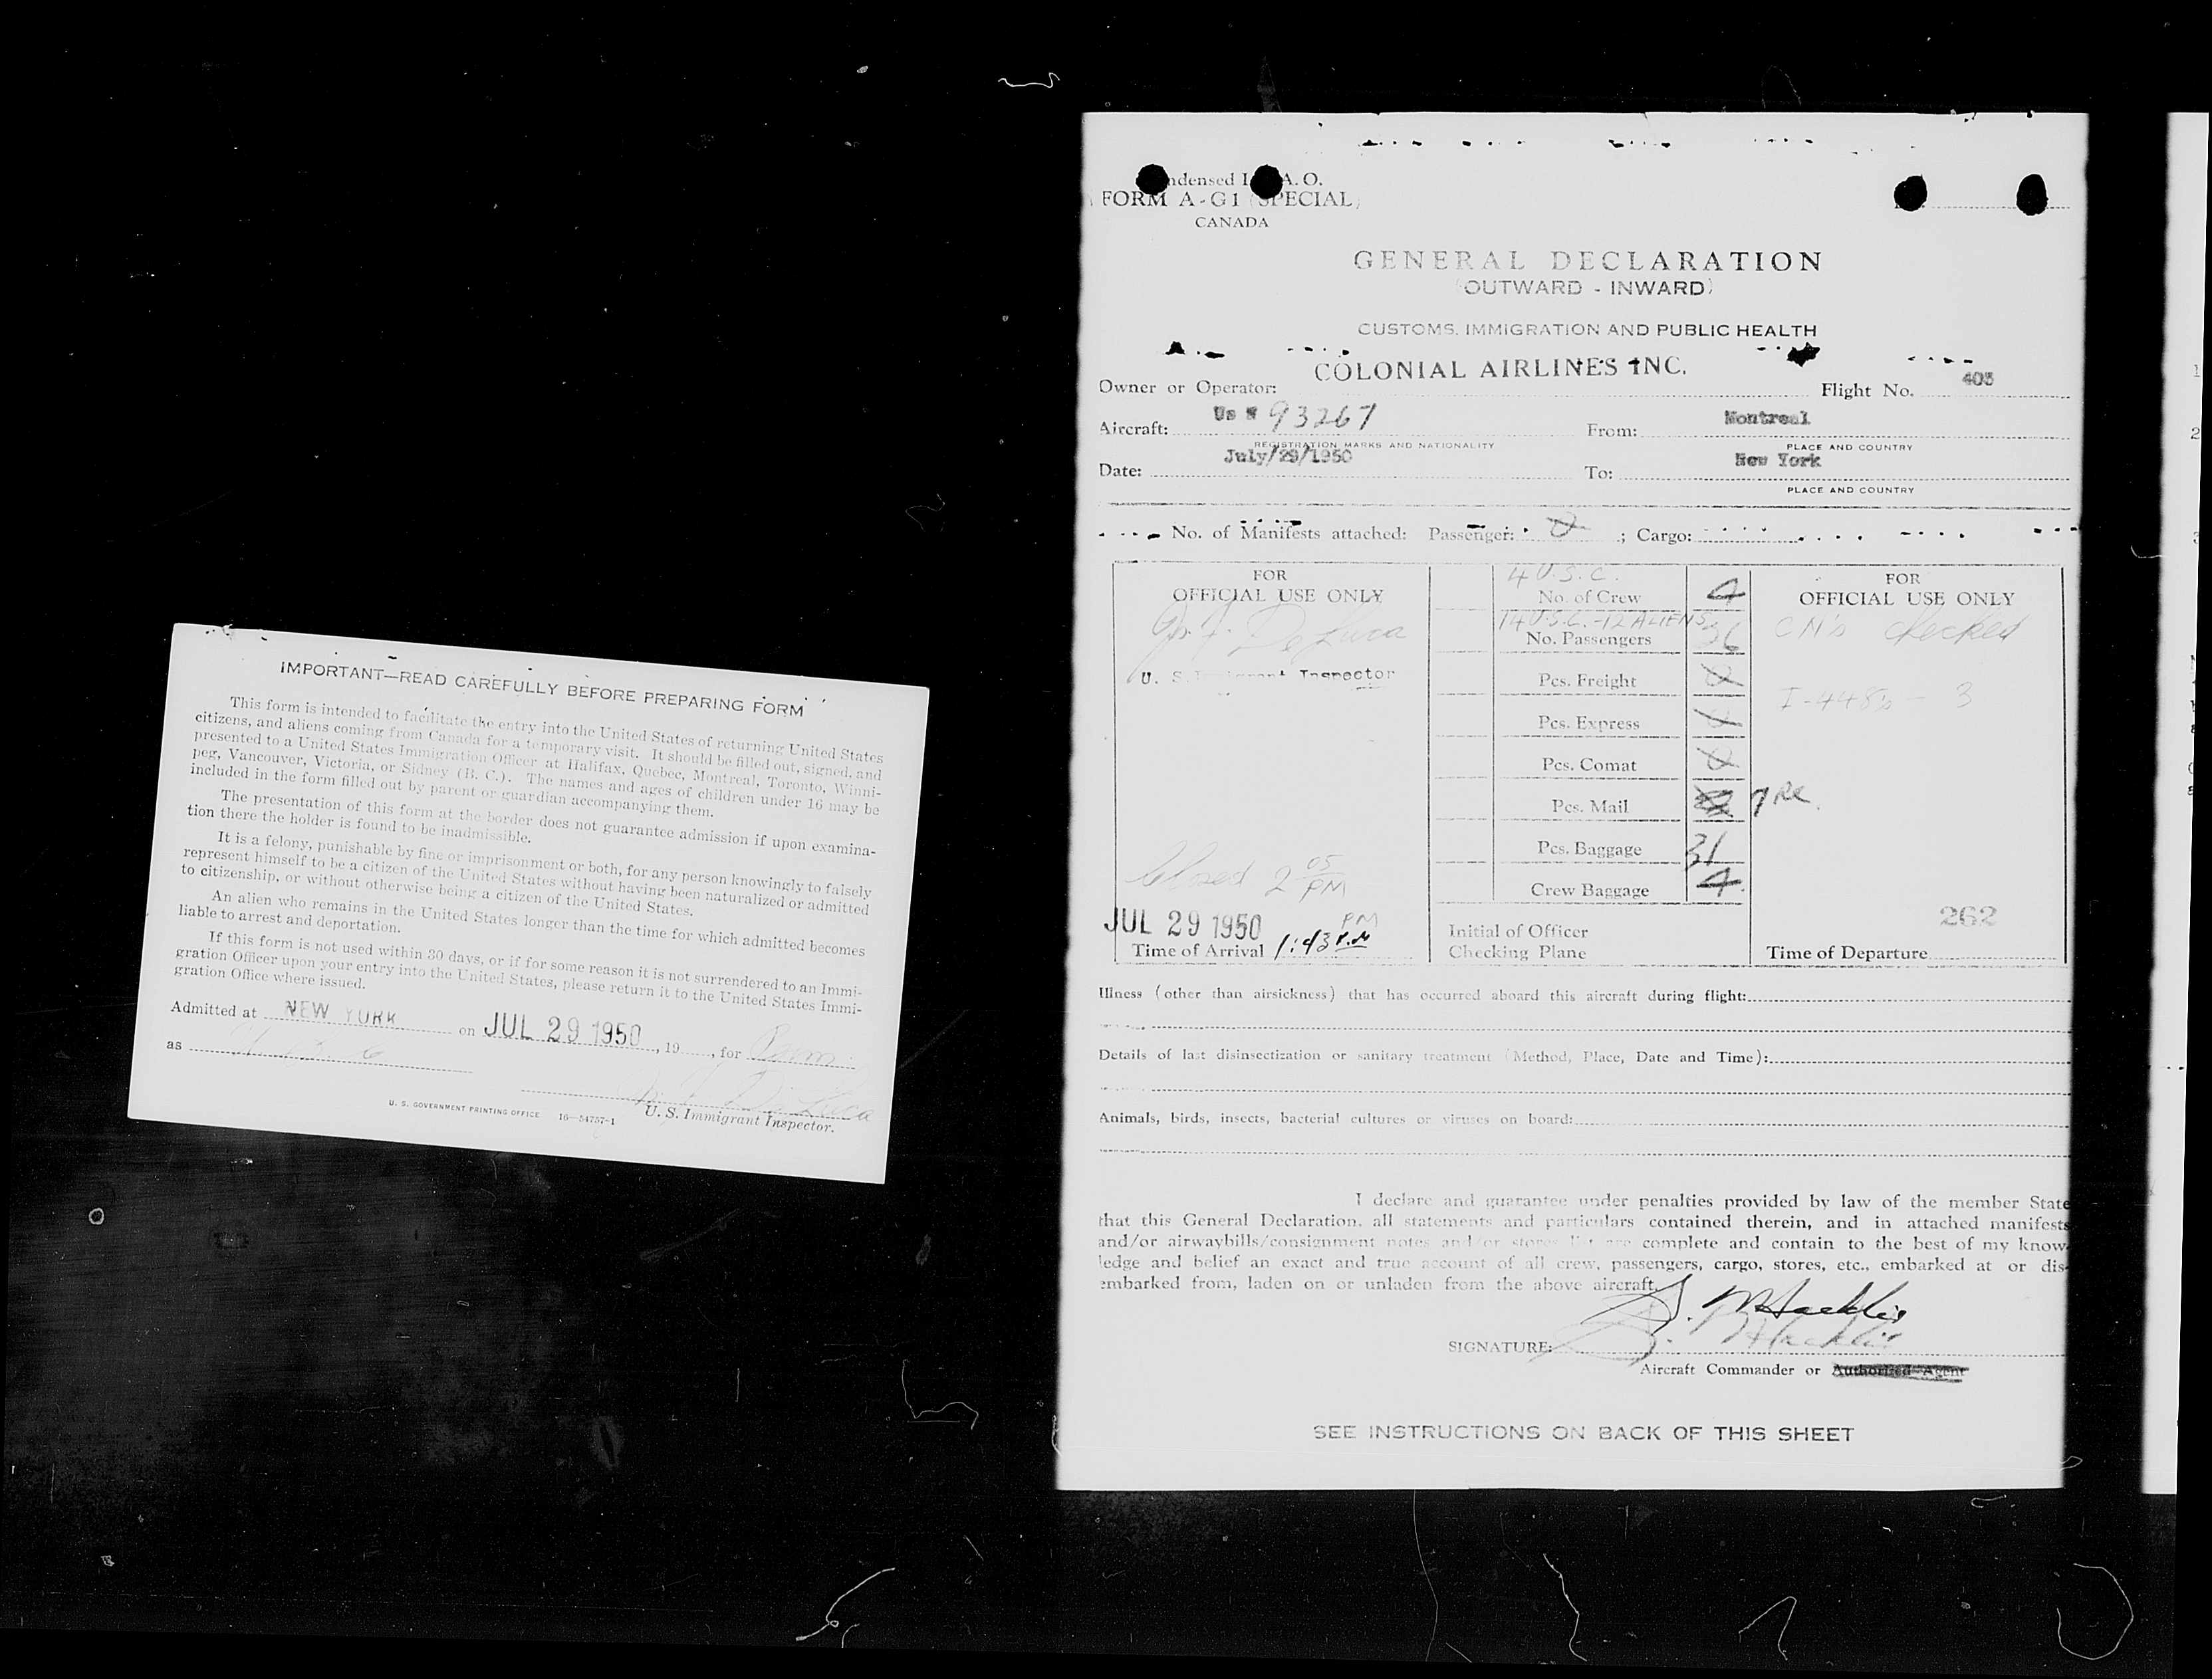 IMPORTANT—READ CAREFULLY BEFORE PREPARING FORM
This form is intended to facilitate the entry into the United States of returning United States
citizens, and aliens coming from Canada for a temporary visit. It should be filled out, signed, and
presented to a United States Immigration Officer at Halifax, Quebec, Montreal, Toronto, Winni-
peg, Vancouver, Victoria, or Sidney (B. C.). The names and ages of children under 16 may be
included in the form filled out by parent or guardian accompanying them.
The presentation of this form at the border does not guarantee admission if upon examina-
tion there the holder is found to be inadmissible.
It is a felony, punishable by fine or imprisonment or both, for any person knowingly to falsely
represent himself to be a citizen of the United States without having been naturalized or admitted
to citizenship, or without otherwise being a citizen of the United States.
An alien who remains in the United States longer than the time for which admitted becomes
liable to arrest and deportation.
If this form is not used within 30 days, or if for some reason it is not surrendered to an Immi-
gration Officer upon your entry into the United States, please return it to the United States Immi-
gration Office where issued.
Admitted at NEW YORK on JUL 29 1950, 19, for Perm
as
De Luca
U. S. GOVERNMENT PRINTING OFFICE 16—54757-1 U. S. Immigrant Inspector.
A. O.
FORM A-G1 (SPECIAL)
CANADA
GENERAL DECLARATION
(OUTWARD - INWARD)
CUSTOMS, IMMIGRATION AND PUBLIC HEALTH
COLONIAL AIRLINES INC.
Owner or Operator: Flight No. 403
Aircraft: Us N 93267 From: Montreal
REGISTRATION MARKS AND NATIONALITY PLACE AND COUNTRY
Date: July/29/1950 To: New York
PLACE AND COUNTRY
No. of Manifests attached: Passenger: 0 ; Cargo:
FOR
OFFICIAL USE ONLY
De Luca
U. S. Inspector
Closed 2 05 PM
JUL 29 1950 PM
Time of Arrival 1:43 P.M
4 U.S.C.
No. of Crew 4
14 U.S.C. - 12 ALIENS
No. Passengers
Pcs. Freight 0
Pcs. Express
Pcs. Comat 0
Pcs. Mail 7 RR.
Pcs. Baggage 31
Crew Baggage 4
Initial of Officer
Checking Plane
FOR
OFFICIAL USE ONLY
checked
I-448's - 3
262
Time of Departure
Illness (other than airsickness) that has occurred aboard this aircraft during flight:
Details of last disinsectization or sanitary treatment (Method, Place, Date and Time):
Animals, birds, insects, bacterial cultures or viruses on board:
I declare and guarantee under penalties provided by law of the member State
that this General Declaration, all statements and particulars contained therein, and in attached manifests
and/or airwaybills/consignment notes and/or stores list are complete and contain to the best of my know-
ledge and belief an exact and true account of all crew, passengers, cargo, stores, etc., embarked at or dis-
embarked from, laden on or unladen from the above aircraft.
SIGNATURE:
Aircraft Commander or Authorized Agent
SEE INSTRUCTIONS ON BACK OF THIS SHEET